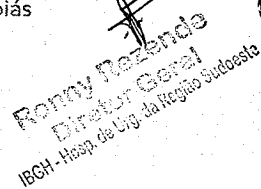 oiás
Ronny Rezende
Diretor Geral
IBGH - Hosp. de Urg. da Região Sudoeste